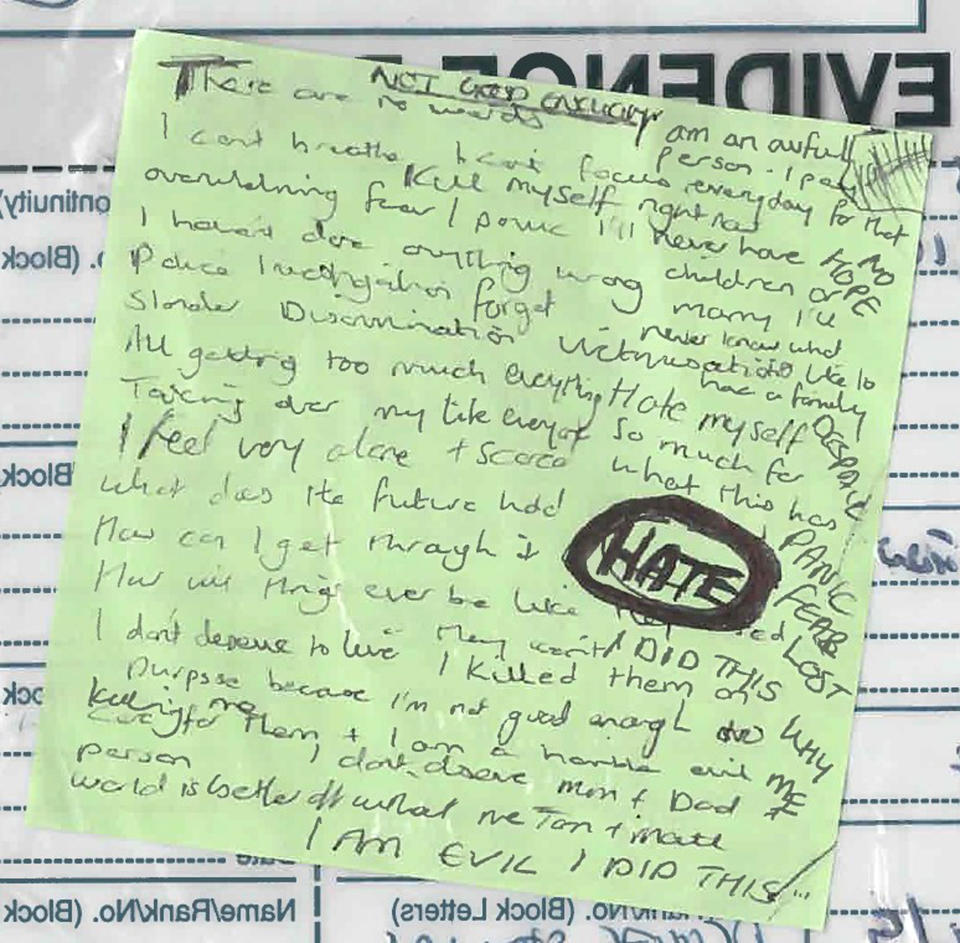 EVIDENCE
NOT GOOD ENOUGH
There are no words
I can't breathe I can't focus
overwhelming fear I panic
Kill myself right now
I haven't done anything wrong
Police Investigation forget
Slander Discrimination Victimisation
All getting too much everything
Taking over my life everyday
I feel very alone + scared
what does the future hold
How can I get through it
How will things ever be like
I don't deserve to live
I killed them on
purpose because I'm not good enough to
care for them, + I am a horrible evil
person I don't deserve Mum + Dad
world is better off without me Tom + Matt
I AM EVIL I DID THIS
am an awful
person. I pay
everyday for that
I'll never have
children or
marry I'll
never know what
it's like to
have a family
Hate myself
so much for
what this has
HATE
They won't
I DID THIS
killing me
NO
HOPE
DESPAIR
PANIC
FEAR
LOST
WHY
ME
(Block Letters)
Name/Rank/No. (Block